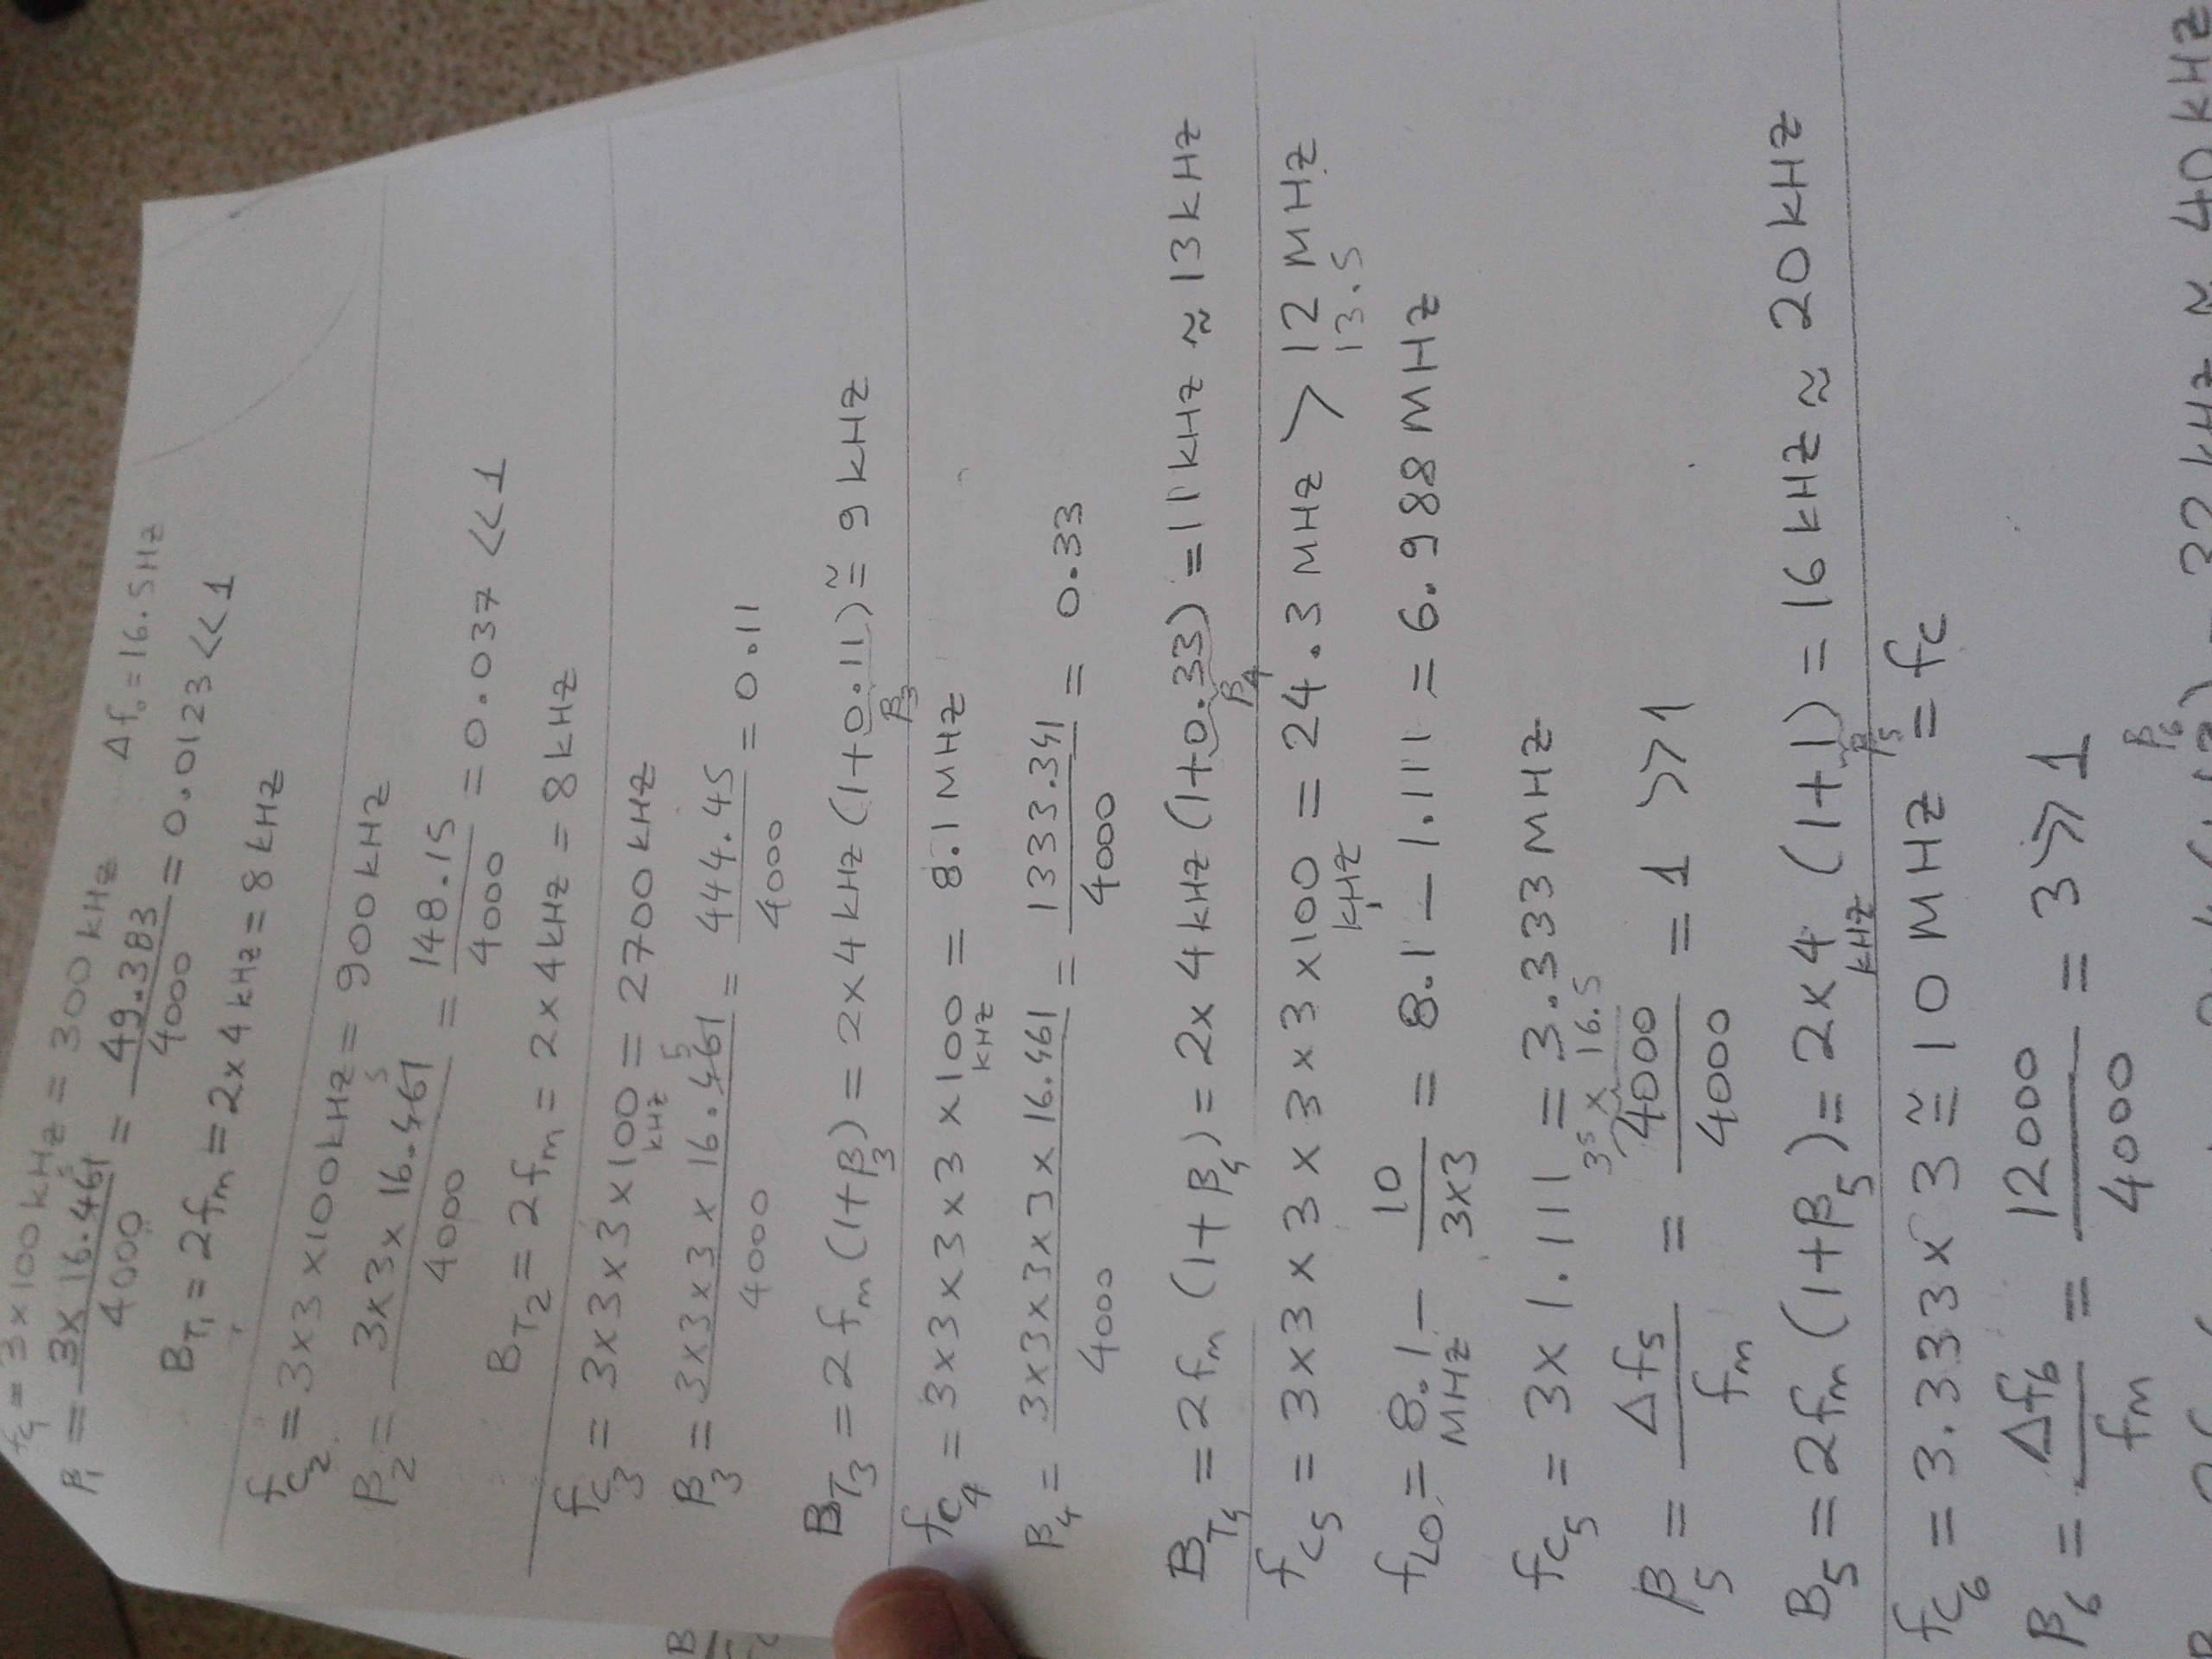 fc₁ = 3 x 100 kHz = 300 kHz
Δf₀ = 16.5 Hz
β₁ = 3 x 16.461 / 4000 = 49.383 / 4000 = 0.0123 << 1
5
B_T₁ = 2fm = 2 x 4 kHz = 8 kHz
fc₂ = 3 x 3 x 100 kHz = 900 kHz
β₂ = 3 x 3 x 16.461 / 4000 = 148.15 / 4000 = 0.037 << 1
5
B_T₂ = 2fm = 2 x 4 kHz = 8 kHz
fc₃ = 3 x 3 x 3 x 100 kHz = 2700 kHz
β₃ = 3 x 3 x 3 x 16.461 / 4000 = 444.45 / 4000 = 0.11
5
B_T₃ = 2fm (1+β₃) = 2 x 4 kHz (1+0.11) ≅ 9 kHz
β₃
fc₄ = 3 x 3 x 3 x 3 x 100 kHz = 8.1 MHz
β₄ = 3 x 3 x 3 x 3 x 16.461 / 4000 = 1333.341 / 4000 = 0.33
B_T₄ = 2fm (1+β₄) = 2 x 4 kHz (1+0.33) = 11 kHz ≈ 13 kHz
β₄
fc₅ = 3 x 3 x 3 x 3 x 3 x 100 kHz = 24.3 MHz > 12 MHz
13.5
f_LO = 8.1 MHz - 10 / 3x3 = 8.1 - 1.111 = 6.988 MHz
fc₅ = 3 x 1.111 = 3.333 MHz
3⁵ x 16.5
β₅ = Δf₅ / fm = 4000 / 4000 = 1 >> 1
B₅ = 2fm (1+β₅) = 2 x 4 kHz (1+1) = 16 kHz ≈ 20 kHz
β₅
fc₆ = 3.333 x 3 ≅ 10 MHz = fc
β₆ = Δf₆ / fm = 12000 / 4000 = 3 >> 1
β₆
32 kHz ≈ 40 kHz